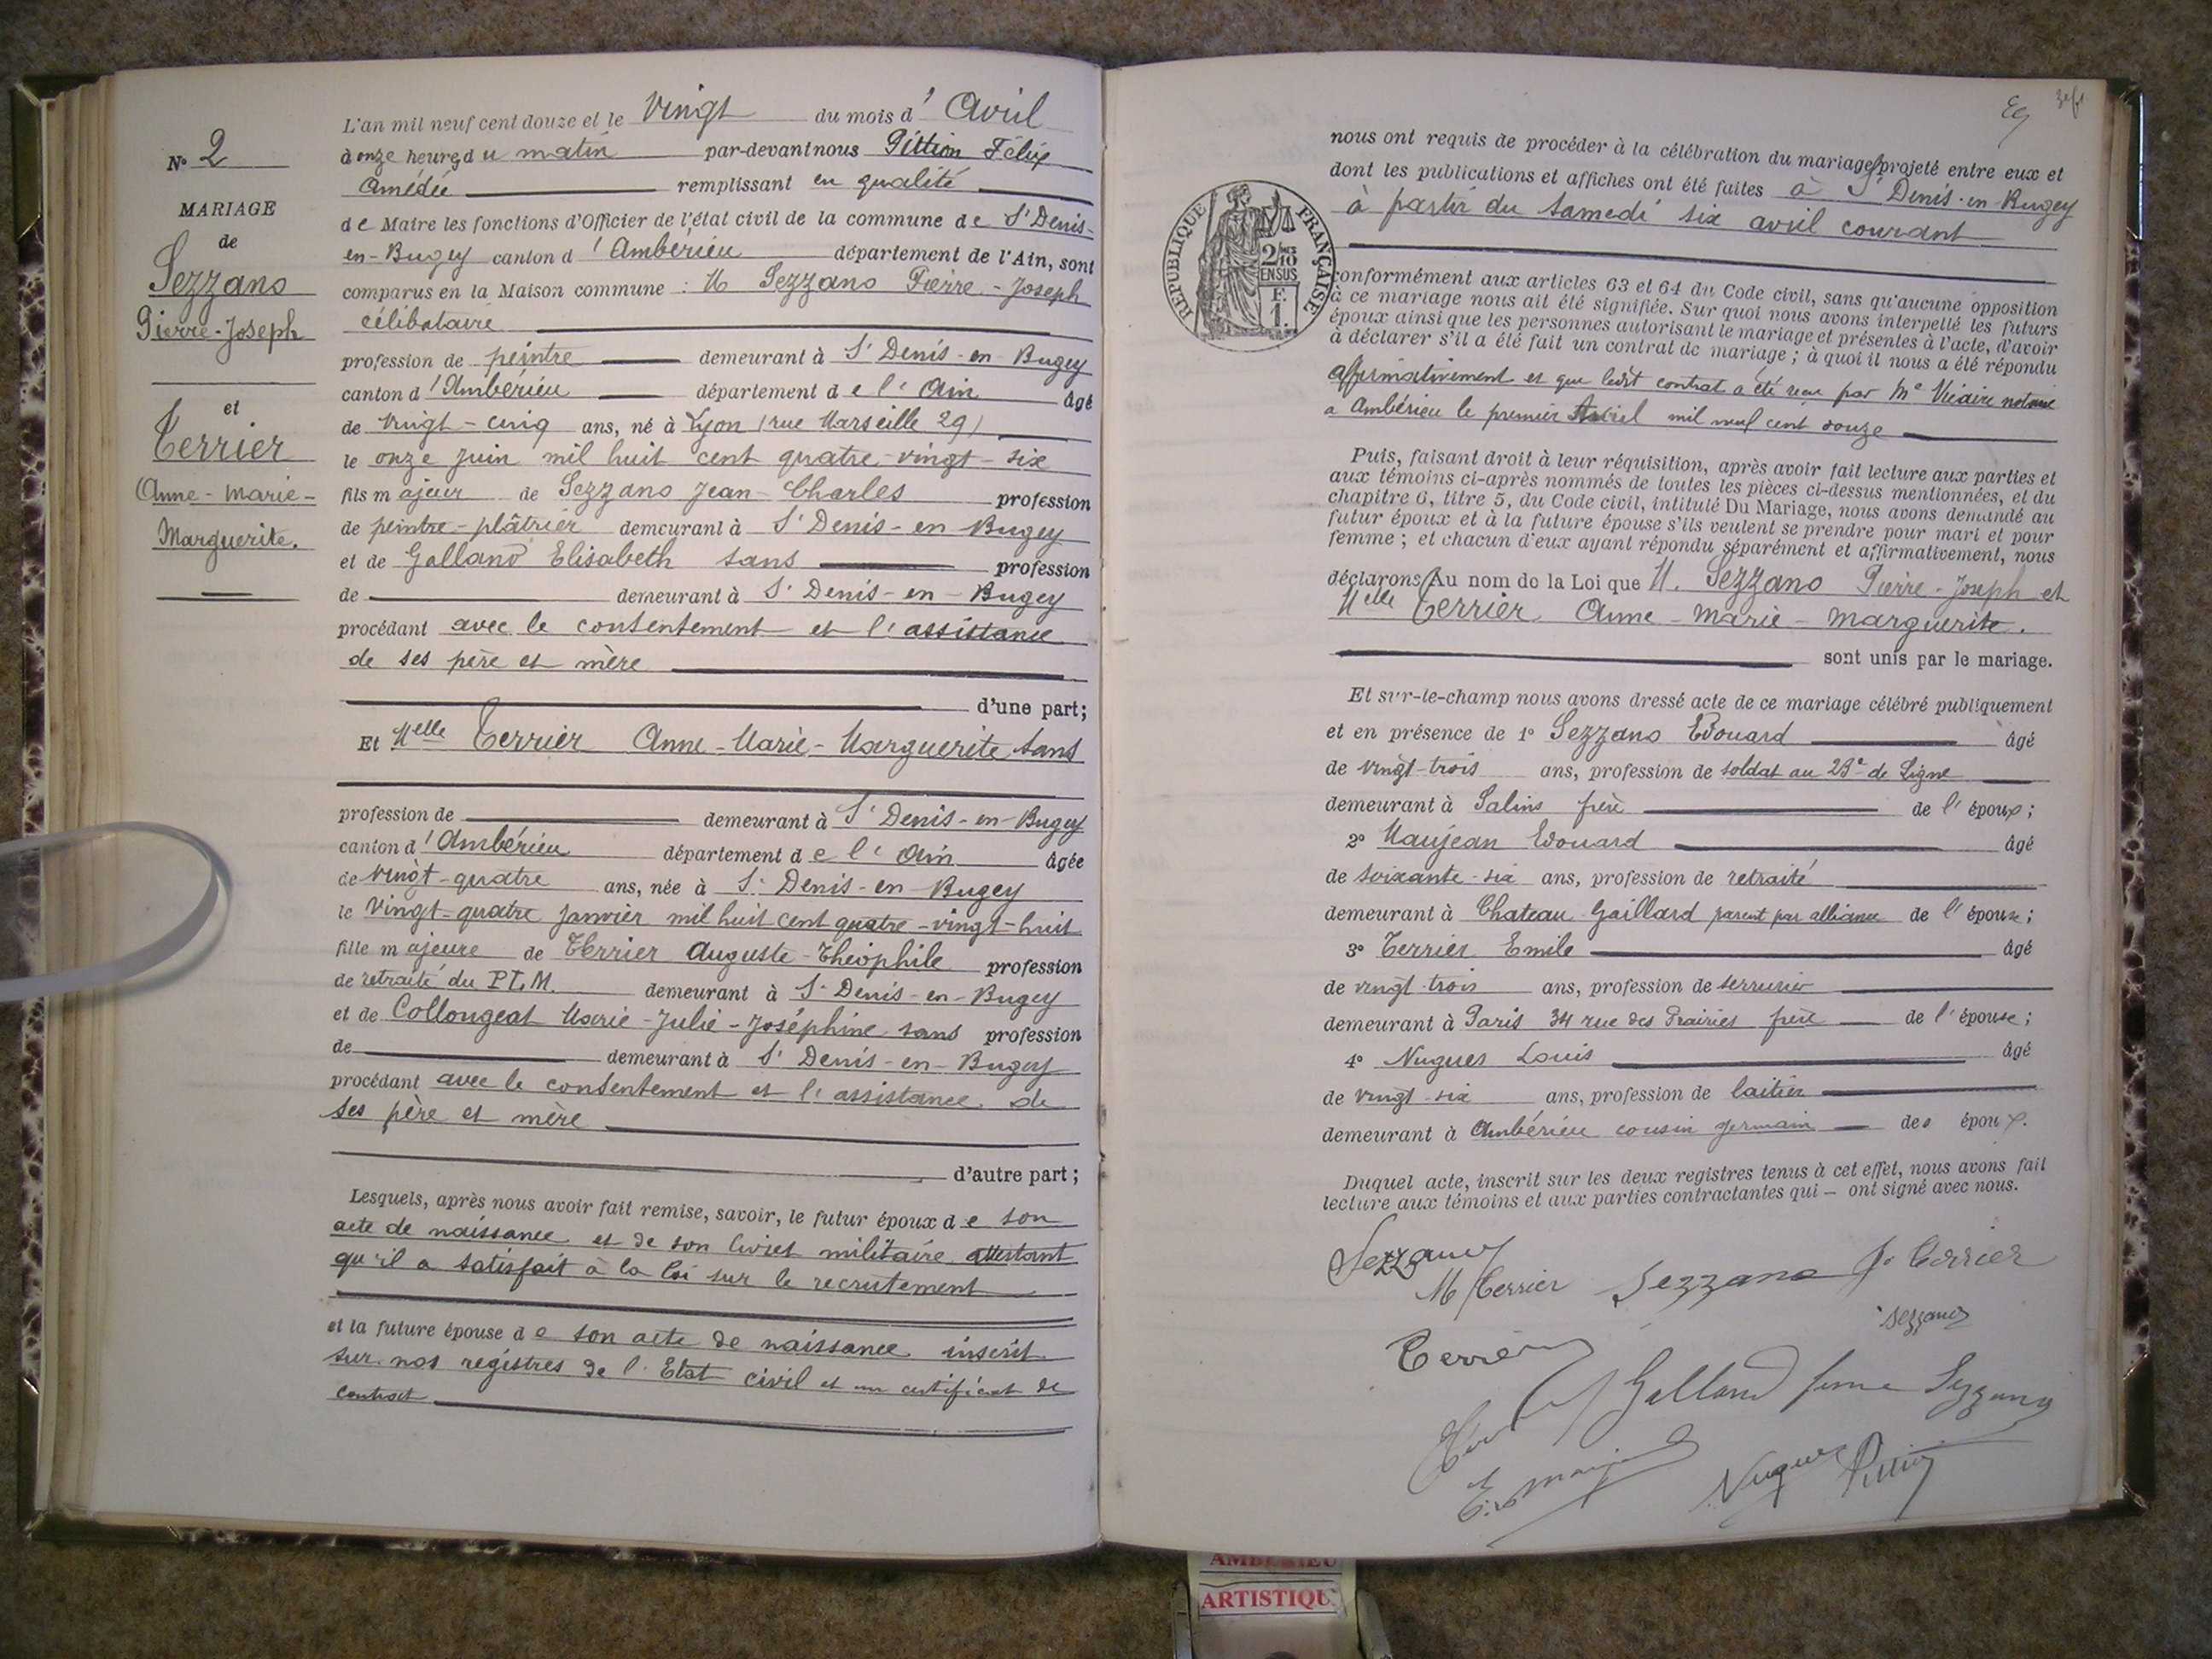 N° 2
MARIAGE
de
Sezzano
Pierre-Joseph
et
Terrier
Anne-Marie-
Marguerite.
L'an mil neuf cent douze et le Vingt du mois d'Avril
à onze heures du matin par-devant nous Pittion Félix
Amédée remplissant en qualité
de Maire les fonctions d'Officier de l'état civil de la commune de St Denis-
en-Bugey canton d'Ambérieu département de l'Ain, sont
comparus en la Maison commune : M Sezzano Pierre-Joseph
célibataire
profession de peintre demeurant à St Denis-en-Bugey
canton d'Ambérieu département de l'Ain âgé
de vingt-cinq ans, né à Lyon (rue Marseille 29)
le onze juin mil huit cent quatre-vingt-six
fils majeur de Sezzano Jean-Charles profession
de peintre-plâtrier demeurant à St Denis-en-Bugey
et de Galland Elisabeth sans profession
de demeurant à St Denis-en-Bugey
procédant avec le consentement et l'assistance
de ses père et mère
d'une part;
Et Melle Terrier Anne-Marie-Marguerite sans
profession de demeurant à St Denis-en-Bugey
canton d'Ambérieu département de l'Ain âgée
de vingt-quatre ans, née à St Denis-en-Bugey
le Vingt-quatre Janvier mil huit cent quatre-vingt-huit
fille majeure de Terrier Auguste-Théophile profession
de retraité du P.L.M. demeurant à St Denis-en-Bugey
et de Collongeat Marie-Julie-Joséphine sans profession
de demeurant à St Denis-en-Bugey
procédant avec le consentement et l'assistance de
ses père et mère
d'autre part;
Lesquels, après nous avoir fait remise, savoir, le futur époux de son
acte de naissance et de son livret militaire attestant
qu'il a satisfait à la loi sur le recrutement
et la future épouse de son acte de naissance inscrit
sur nos registres de l'Etat civil et un certificat de
contrat
nous ont requis de procéder à la célébration du mariage projeté entre eux et
dont les publications et affiches ont été faites à St Denis-en-Bugey
à partir du samedi six avril courant
RÉPUBLIQUE FRANÇAISE
2/10
EN SUS
F.
1.
conformément aux articles 63 et 64 du Code civil, sans qu'aucune opposition
à ce mariage nous ait été signifiée. Sur quoi nous avons interpellé les futurs
époux ainsi que les personnes autorisant le mariage et présentes à l'acte, d'avoir
à déclarer s'il a été fait un contrat de mariage ; à quoi il nous a été répondu
affirmativement et que ledit contrat a été reçu par Me Vicaire notaire
a Ambérieu le premier Avril mil neuf cent douze
Puis, faisant droit à leur réquisition, après avoir fait lecture aux parties et
aux témoins ci-après nommés de toutes les pièces ci-dessus mentionnées, et du
chapitre 6, titre 5, du Code civil, intitulé Du Mariage, nous avons demandé au
futur époux et à la future épouse s'ils veulent se prendre pour mari et pour
femme ; et chacun d'eux ayant répondu séparément et affirmativement, nous
déclarons Au nom de la Loi que M. Sezzano Pierre-Joseph et
Melle Terrier Anne-Marie-Marguerite.
sont unis par le mariage.
Et sur-le-champ nous avons dressé acte de ce mariage célébré publiquement
et en présence de 1° Sezzano Edouard âgé
de vingt-trois ans, profession de soldat au 23e de Ligne
demeurant à Salins frère de l'époux;
2° Maujean Edouard âgé
de soixante-six ans, profession de retraité
demeurant à Chateau Gaillard parent par alliance de l'épouse;
3° Terrier Emile âgé
de vingt-trois ans, profession de serrurier
demeurant à Paris 34 rue des Prairies frère de l'épouse;
4° Nugues Louis âgé
de vingt-six ans, profession de laitier
demeurant à Ambérieu cousin germain des époux.
Duquel acte, inscrit sur les deux registres tenus à cet effet, nous avons fait
lecture aux témoins et aux parties contractantes qui – ont signé avec nous.
Sezzano
M Terrier Sezzano J. Terrier
Sezzano
Terrier
Galland femme Sezzano
Nugues Pittion
AMBÉRIEU
ARTISTIQU